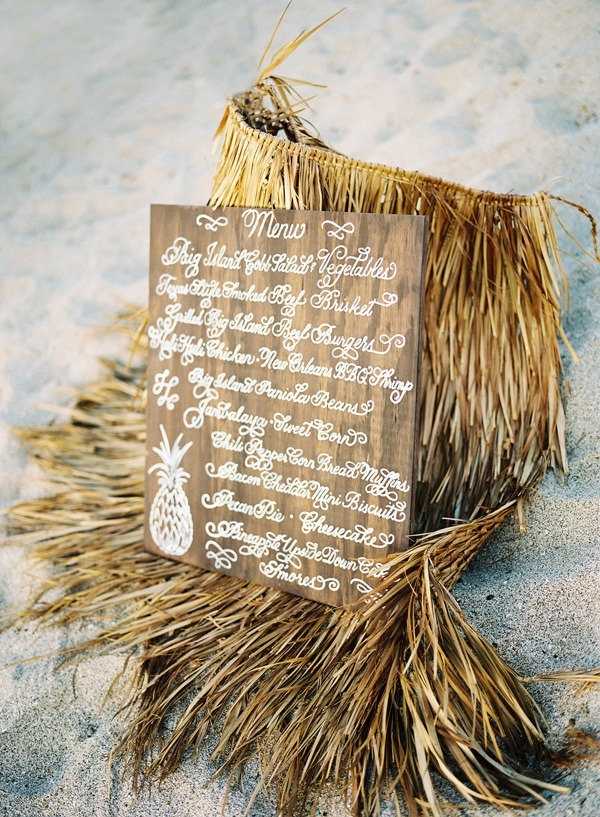 Menu
Big Island Cobb Salad • Vegetables
Texas Style Smoked Beef Brisket
Grilled Big Island Beef Burgers
Huli Huli Chicken • New Orleans BBQ Shrimp
Big Island Paniolo Beans
Jambalaya • Sweet Corn
Chili Pepper Corn Bread Muffins
Bacon Cheddar Mini Biscuits
Pecan Pie • Cheesecake
Pineapple Upside Down Cake
S'mores